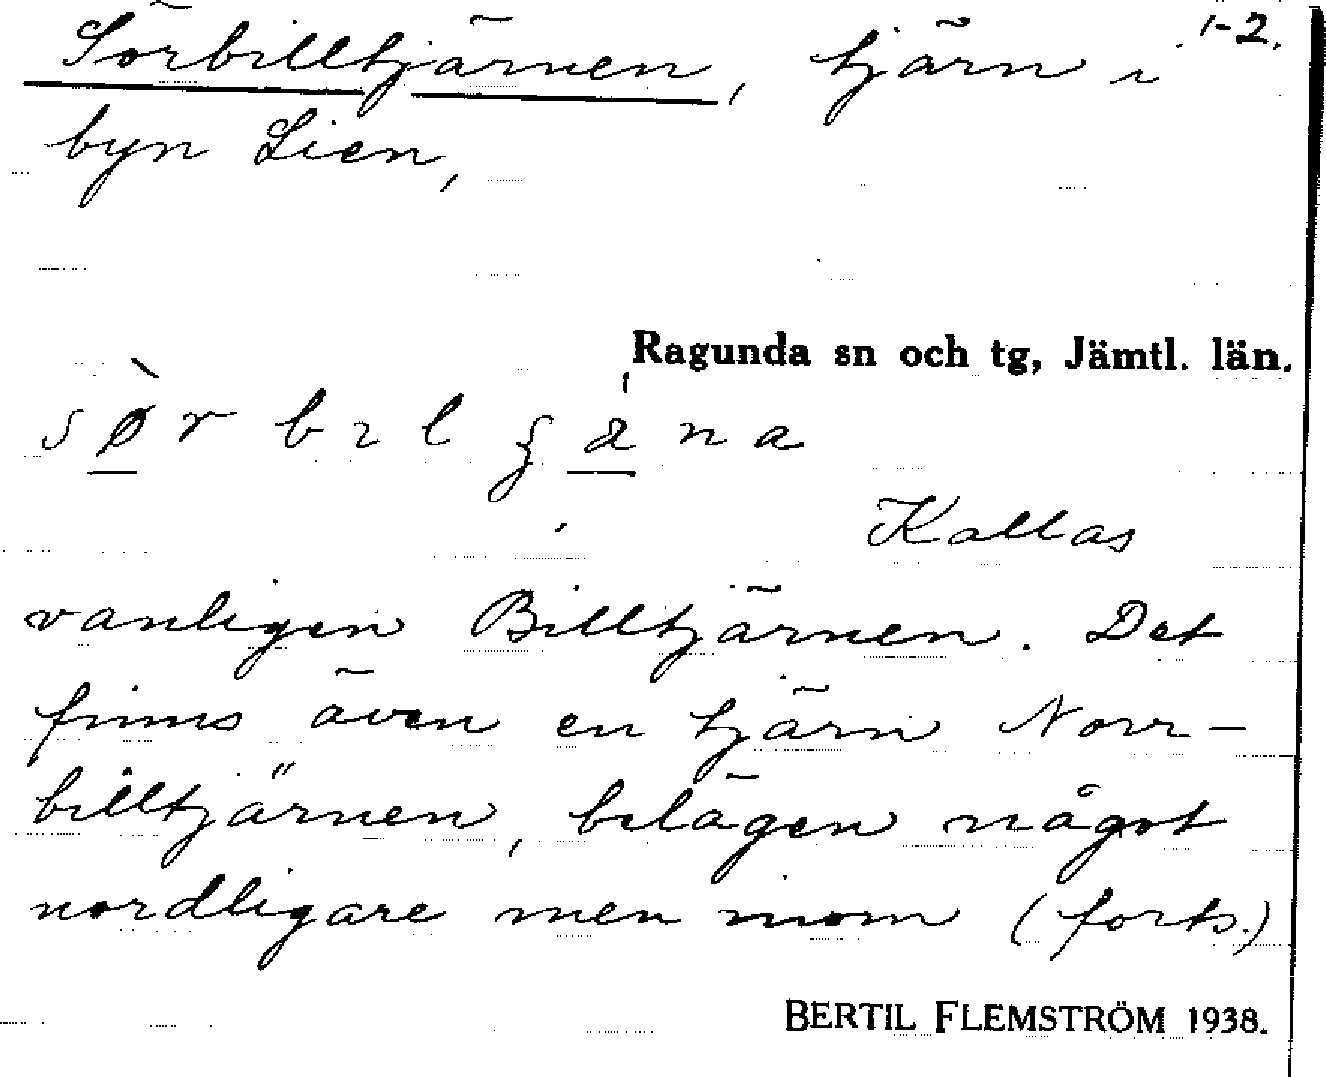 Sörbilltjärnen, tjärn i 1-2.
byn Lien,
Ragunda sn och tg, Jämtl. län.
Kallas
vanligen Billtjärnen. Det
finns även en tjärn Norr-
billtjärnen, belägen något
nordligare men inom (forts.)
BERTIL FLEMSTRÖM 1938.